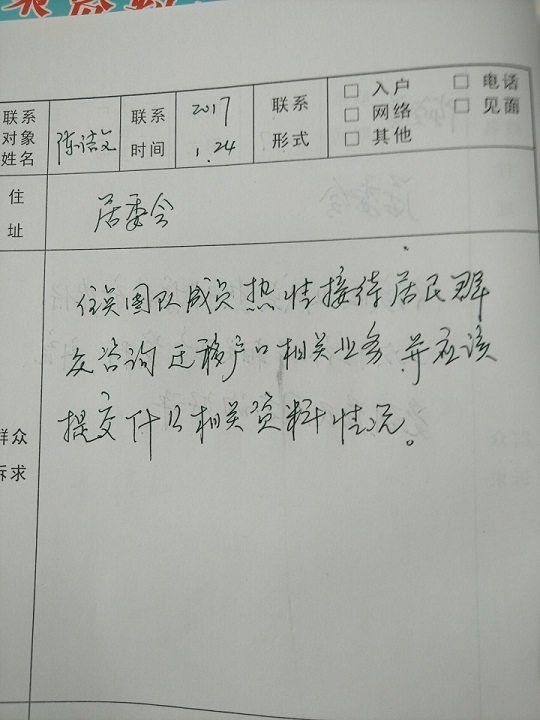 联系对象姓名 陈洁文 联系时间 2017 1.24 联系形式 □ 入户 □ 电话 □ 网络 □ 见面 □ 其他
住址 居委会
群众诉求
住吴团队成员热情接待居民群
众咨询迁移户口相关业务并应该
提交什么相关资料情况。